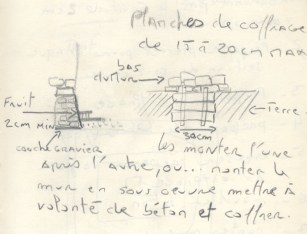 Planches de coffrage
de 15 à 20cm MAX
bas
du mur
Fruit
2cm min
couche gravier
Terre
30cm
les monter l'une
après l'autre, ou... monter le
mur en sous oeuvre mettre à
volonté de béton et coffrer.